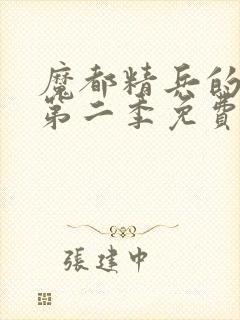 魔都精兵的
第二季免費
張建中